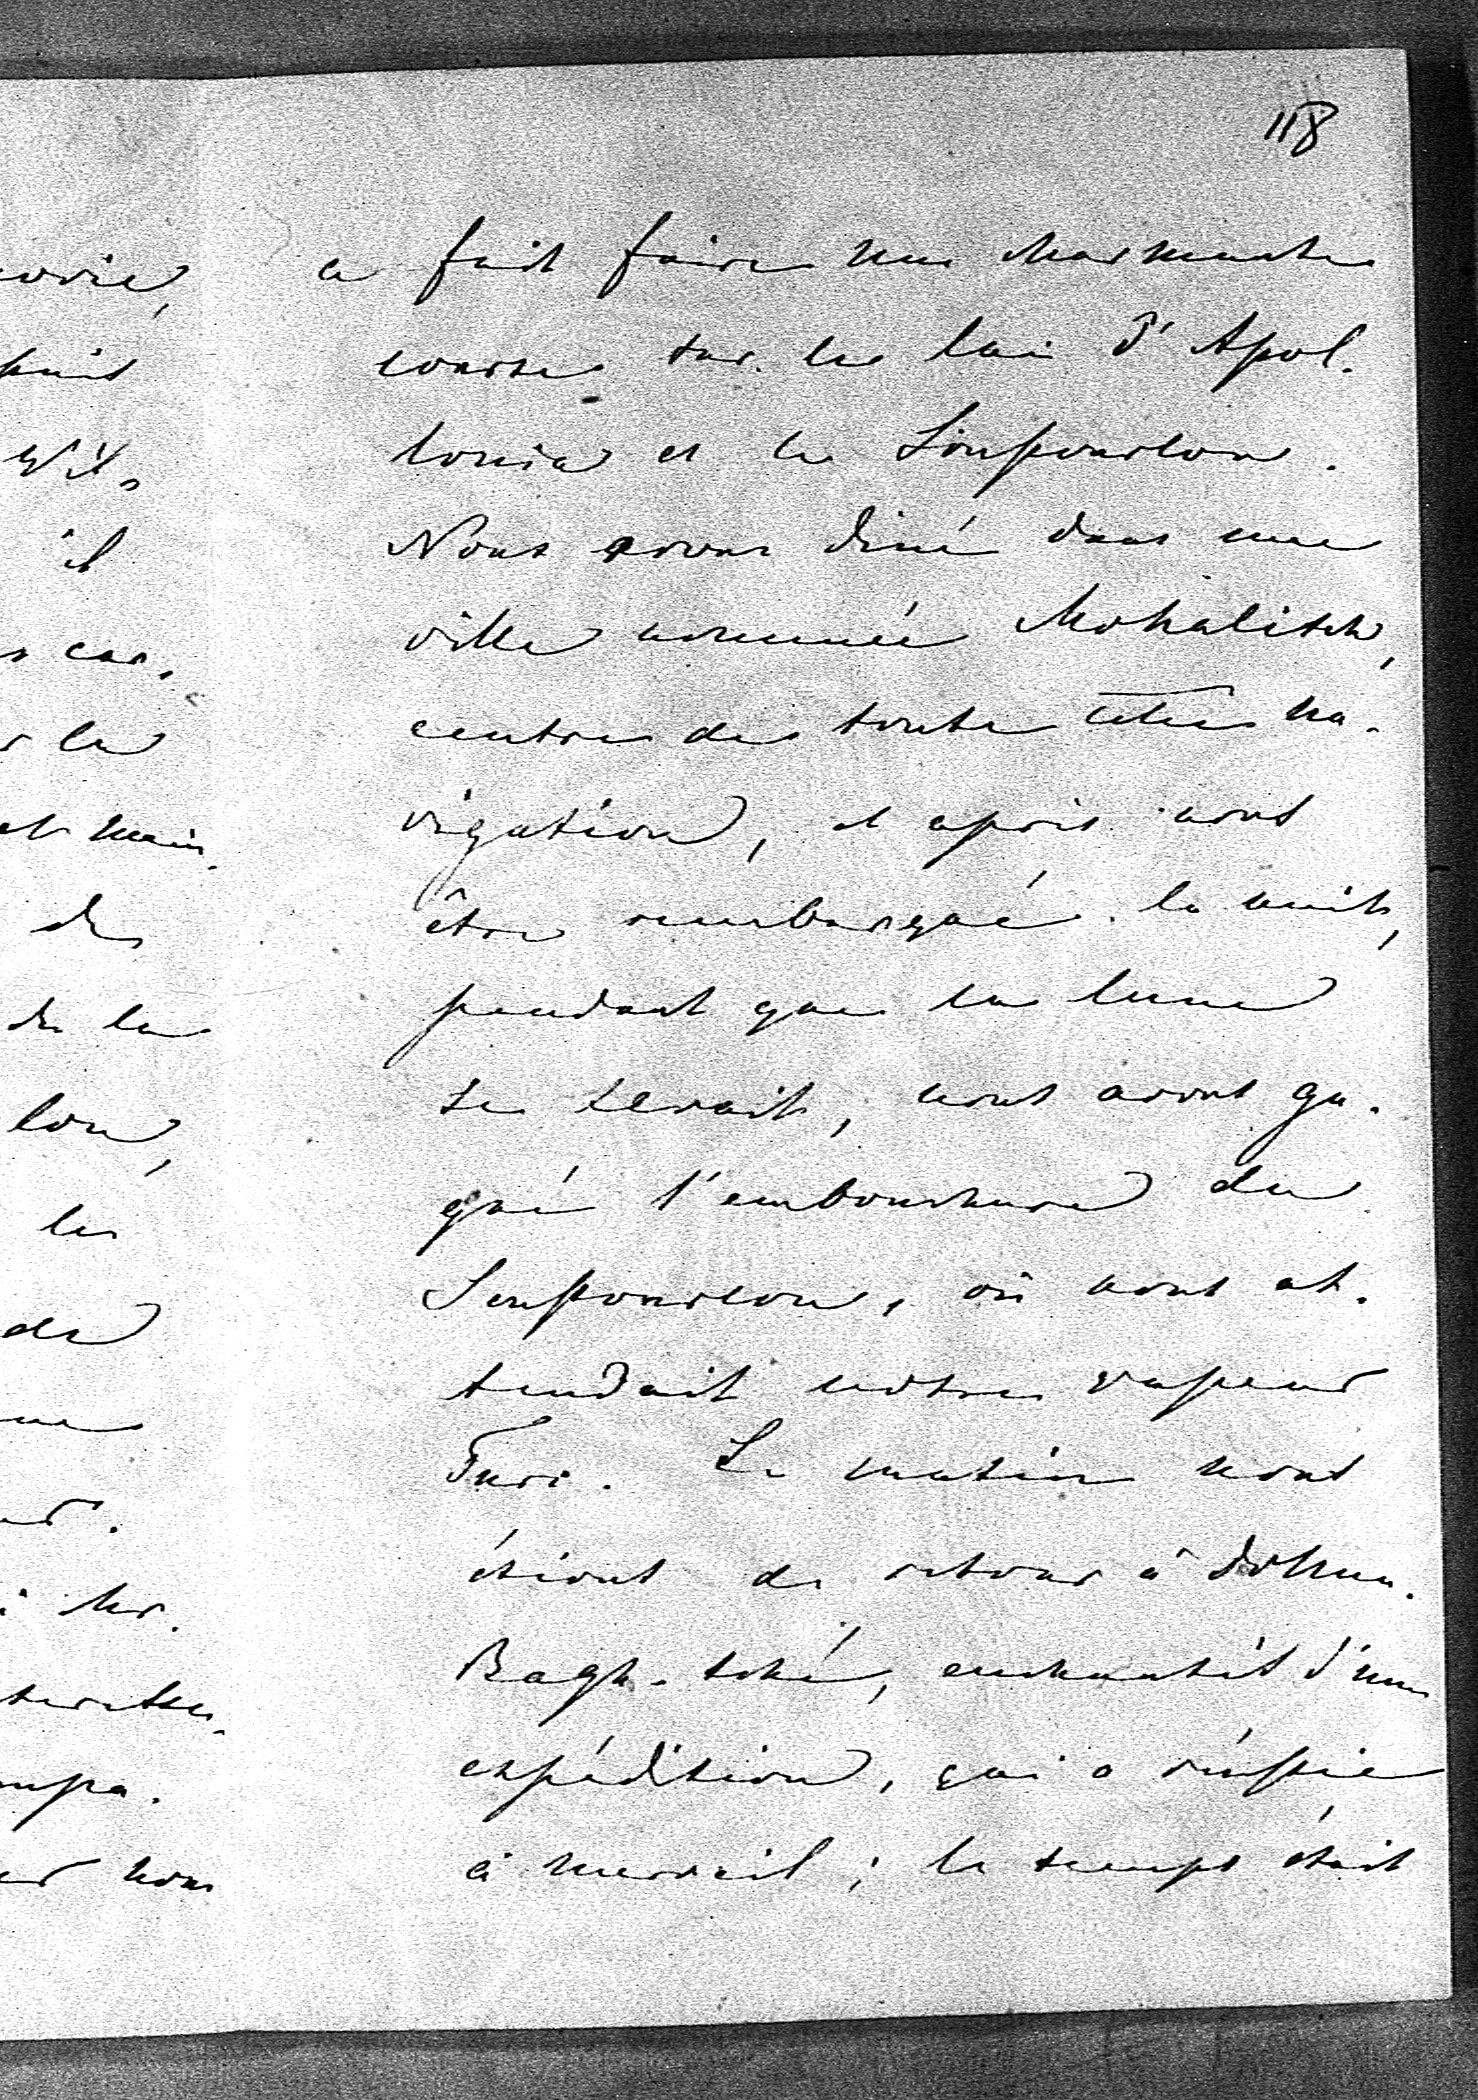 118
a fait faire une charmante
course sur le lac d'Apol.
lonia et le Sousourlou.
Nous avons diné dans une
ville nommée Mohalitch,
centre de toute cette na.
vigation, et après nous
être rembarqué la nuit,
pendant que la lune
se levait, nous avons ga.
gné l'embouchure du
Sousourlou, où nous at.
tendait notre vapeur
Turc. Le matin nous
étions de retour à Dolma.
Bagh-tché, enchantés d'une
expédition, qui a réussie
à merveil; le temps était
puis
il
car.
la
et main.
de
de la
lou,
les
de
nous